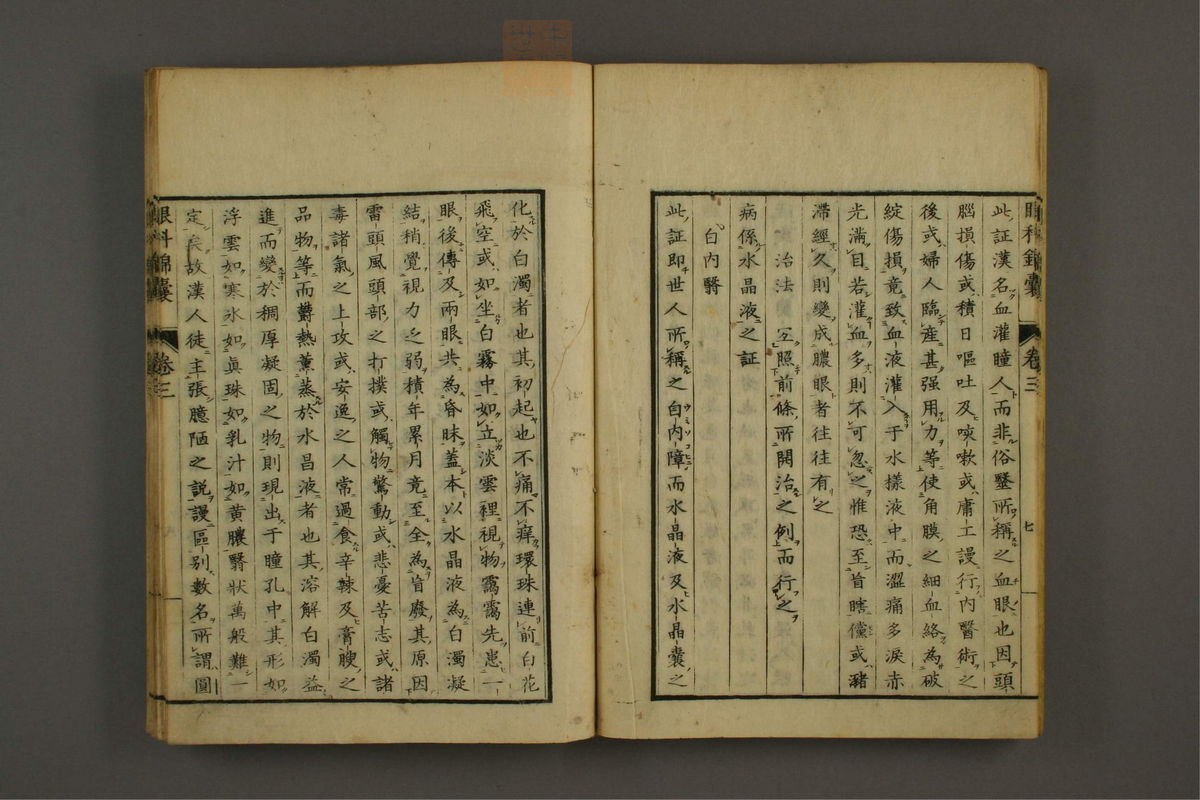 眼科錦囊 卷三 七
此証漢名血灌瞳人而非俗醫所稱之血眼也因頭
腦損傷或積日嘔吐及咳嗽或庸工謾行内醫術之
後或婦人臨產甚强用力等使角膜之細血絡為破
綻傷損竟致血液灌入于水樣液中而澀痛多淚赤
光滿目若灌血多則不可忽之惟恐至盲瞎儻或瀦
滯經久則變成膿眼者往往有之
治法 互照前條所開治之例而行之
病係水晶液之証
白内翳
此証即世人所稱之白内障而水晶液及水晶囊之
化於白濁者也其初起也不痛不痒環珠連前白花
飛空或如坐白霧中如立淡雲裡視物靄靄先患一
眼後傳及兩眼共為昏昧蓋本以水晶液為白濁凝
結稍覺視力乏弱積年累月竟至全為盲廢其原因
雷頭風頭部之打撲或觸物驚動或悲憂苦志或諸
毒諸氣之上攻或安逸之人常過食辛辣及膏腴之
品物等而欝熱薰蒸於水昌液者也其溶解白濁益
進而變於稠厚凝固之物則現出于瞳孔中其形如
浮雲如寒氷如眞珠如乳汁如黄膿翳狀萬般難一
定矣故漢人徒主張臆陋之説謾區别數名所謂圓
眼科錦囊 卷三